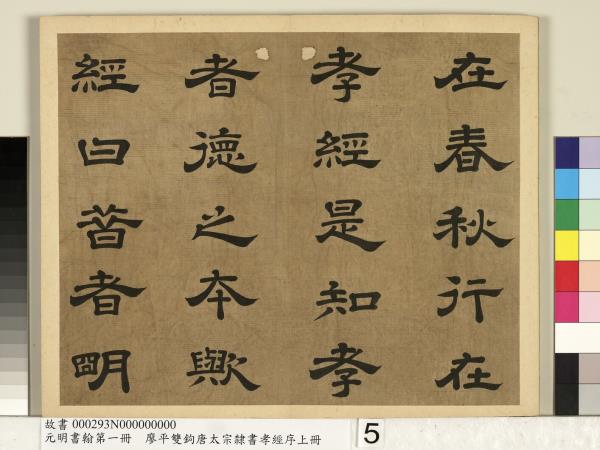 在春秋行在
孝經是知孝
者德之本歟
經曰昔者明
故書 000293N000000000
元明書翰第一冊 廖平雙鉤唐太宗隸書孝經序上冊
5